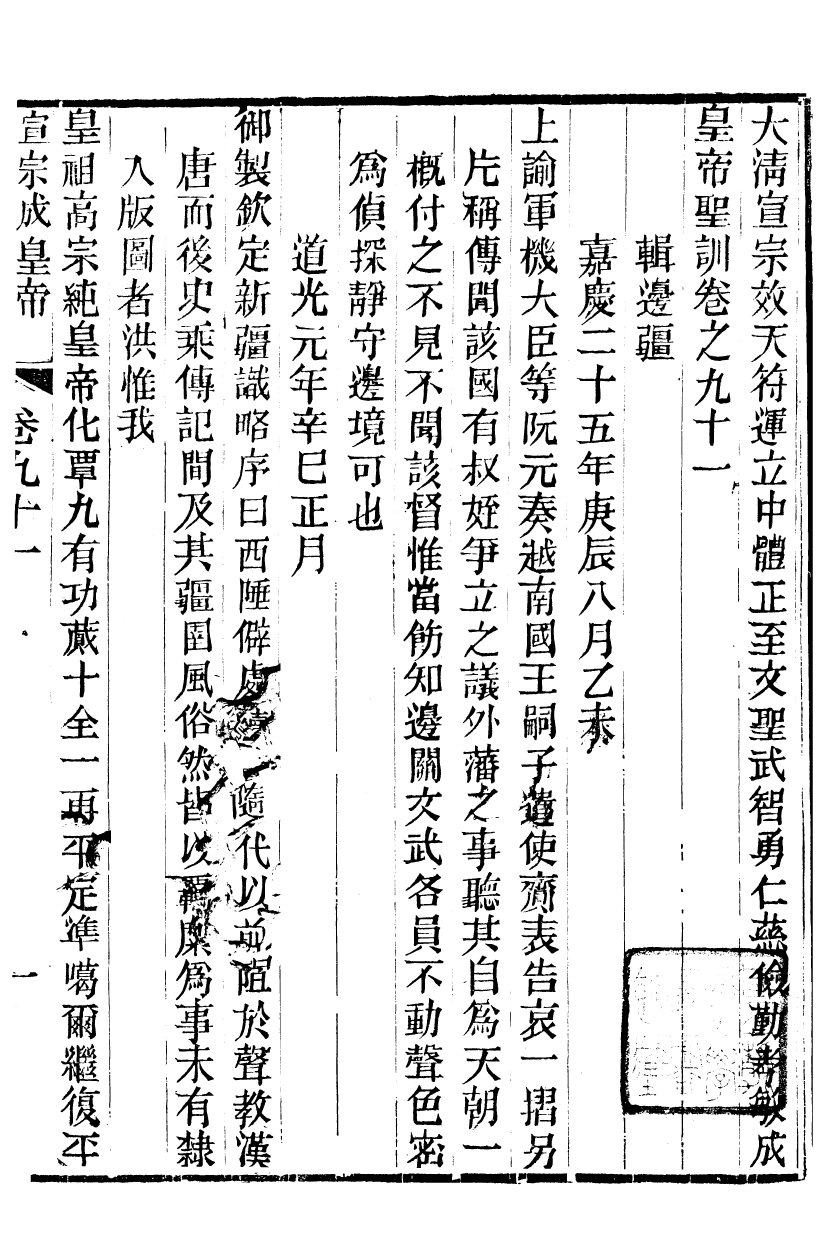 大淸宣宗效天符運立中體正至文聖武智勇仁慈儉勤孝敏成
皇帝聖訓卷之九十一
輯邊疆
嘉慶二十五年庚辰八月乙未
上諭軍機大臣等阮元奏越南國王嗣子遣使齎表告哀一摺另
片稱傳聞該國有叔姪爭立之議外藩之事聽其自爲天朝一
槪付之不見不聞該督惟當飭知邊關文武各員不動聲色密
爲偵探靜守邊境可也
道光元年辛巳正月
御製欽定新疆識略序曰西陲僻處隨代以前阻於聲教漢
唐而後史乘傳記間及其疆圉風俗然皆以羈縻爲事未有隸
入版圖者洪惟我
皇祖高宗純皇帝化覃九有功蕆十全一再平定準噶爾繼復平
宣宗成皇帝 卷九十一 一